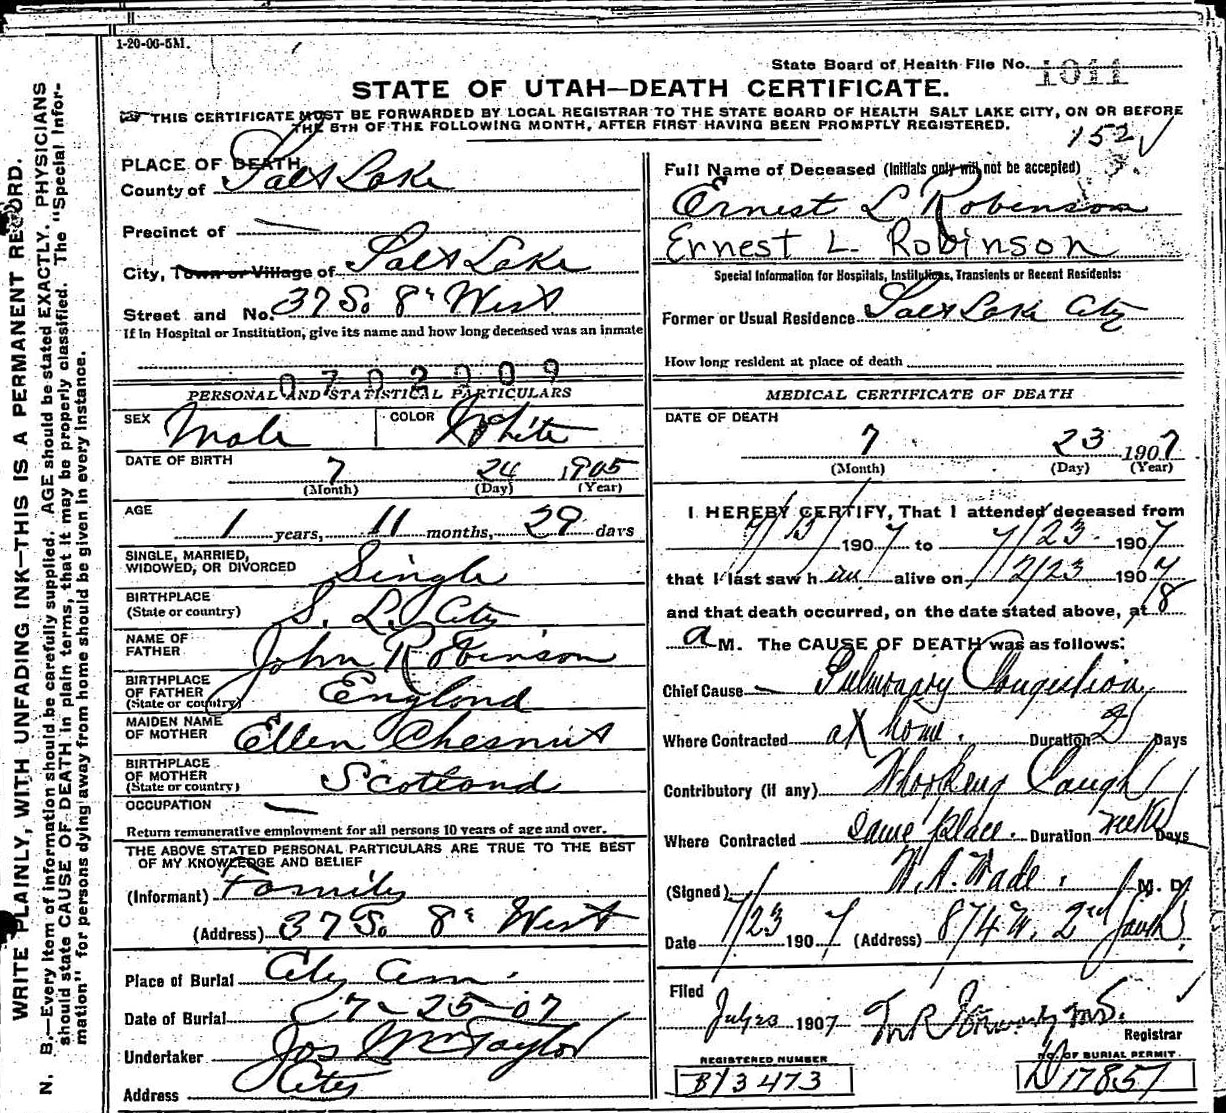 1-20-06-5M.
State Board of Health File No. 1011
STATE OF UTAH—DEATH CERTIFICATE.
THIS CERTIFICATE MUST BE FORWARDED BY LOCAL REGISTRAR TO THE STATE BOARD OF HEALTH SALT LAKE CITY, ON OR BEFORE
THE 5TH OF THE FOLLOWING MONTH, AFTER FIRST HAVING BEEN PROMPTLY REGISTERED.
WRITE PLAINLY, WITH UNFADING INK—THIS IS A PERMANENT RECORD.
N. B.—Every item of information should be carefully supplied. AGE should be stated EXACTLY. PHYSICIANS
should state CAUSE OF DEATH in plain terms, that it may be properly classified. The "Special Infor-
mation" for persons dying away from home should be given in every instance.
PLACE OF DEATH
County of Salt Lake
Precinct of —
City, Town or Village of Salt Lake
Street and No. 37 So. 8th West
If in Hospital or Institution, give its name and how long deceased was an inmate
0702009
PERSONAL AND STATISTICAL PARTICULARS
SEX Male COLOR White
DATE OF BIRTH 7 24 1905
(Month) (Day) (Year)
AGE
1 years, 11 months, 29 days
SINGLE, MARRIED,
WIDOWED, OR DIVORCED Single
BIRTHPLACE
(State or country) S. L. City
NAME OF
FATHER John Robinson
BIRTHPLACE
OF FATHER
(State or country) England
MAIDEN NAME
OF MOTHER Ellen Chesnut
BIRTHPLACE
OF MOTHER
(State or country) Scotland
OCCUPATION —
Return remunerative employment for all persons 10 years of age and over.
THE ABOVE STATED PERSONAL PARTICULARS ARE TRUE TO THE BEST
OF MY KNOWLEDGE AND BELIEF
(Informant) Family
(Address) 37 So. 8th West
Place of Burial City Cem.
Date of Burial 7-25-07
Undertaker Jos Wm Taylor
Address City
152
Full Name of Deceased (Initials only will not be accepted)
Ernest L Robinson
Ernest L. Robinson
Special Information for Hospitals, Institutions, Transients or Recent Residents:
Former or Usual Residence Salt Lake City
How long resident at place of death
MEDICAL CERTIFICATE OF DEATH
DATE OF DEATH
7 23 1907
(Month) (Day) (Year)
I HEREBY CERTIFY, That I attended deceased from
7/13/ 1907 to 7/23 1907
that I last saw him alive on 7/23 1907
and that death occurred, on the date stated above, at 8
a M. The CAUSE OF DEATH was as follows:
Chief Cause — Pulmonary Congestion
Where Contracted at home. Duration 2 Days
Contributory (if any) Whooping Cough
Where Contracted same place. Duration weeks Days
(Signed) W. A. Wade. M. D.
Date 7/23 1907 (Address) 874 W. 2nd South
Filed
July 23 1907
Registrar
REGISTERED NUMBER
BY3473
NO. OF BURIAL PERMIT
D17857